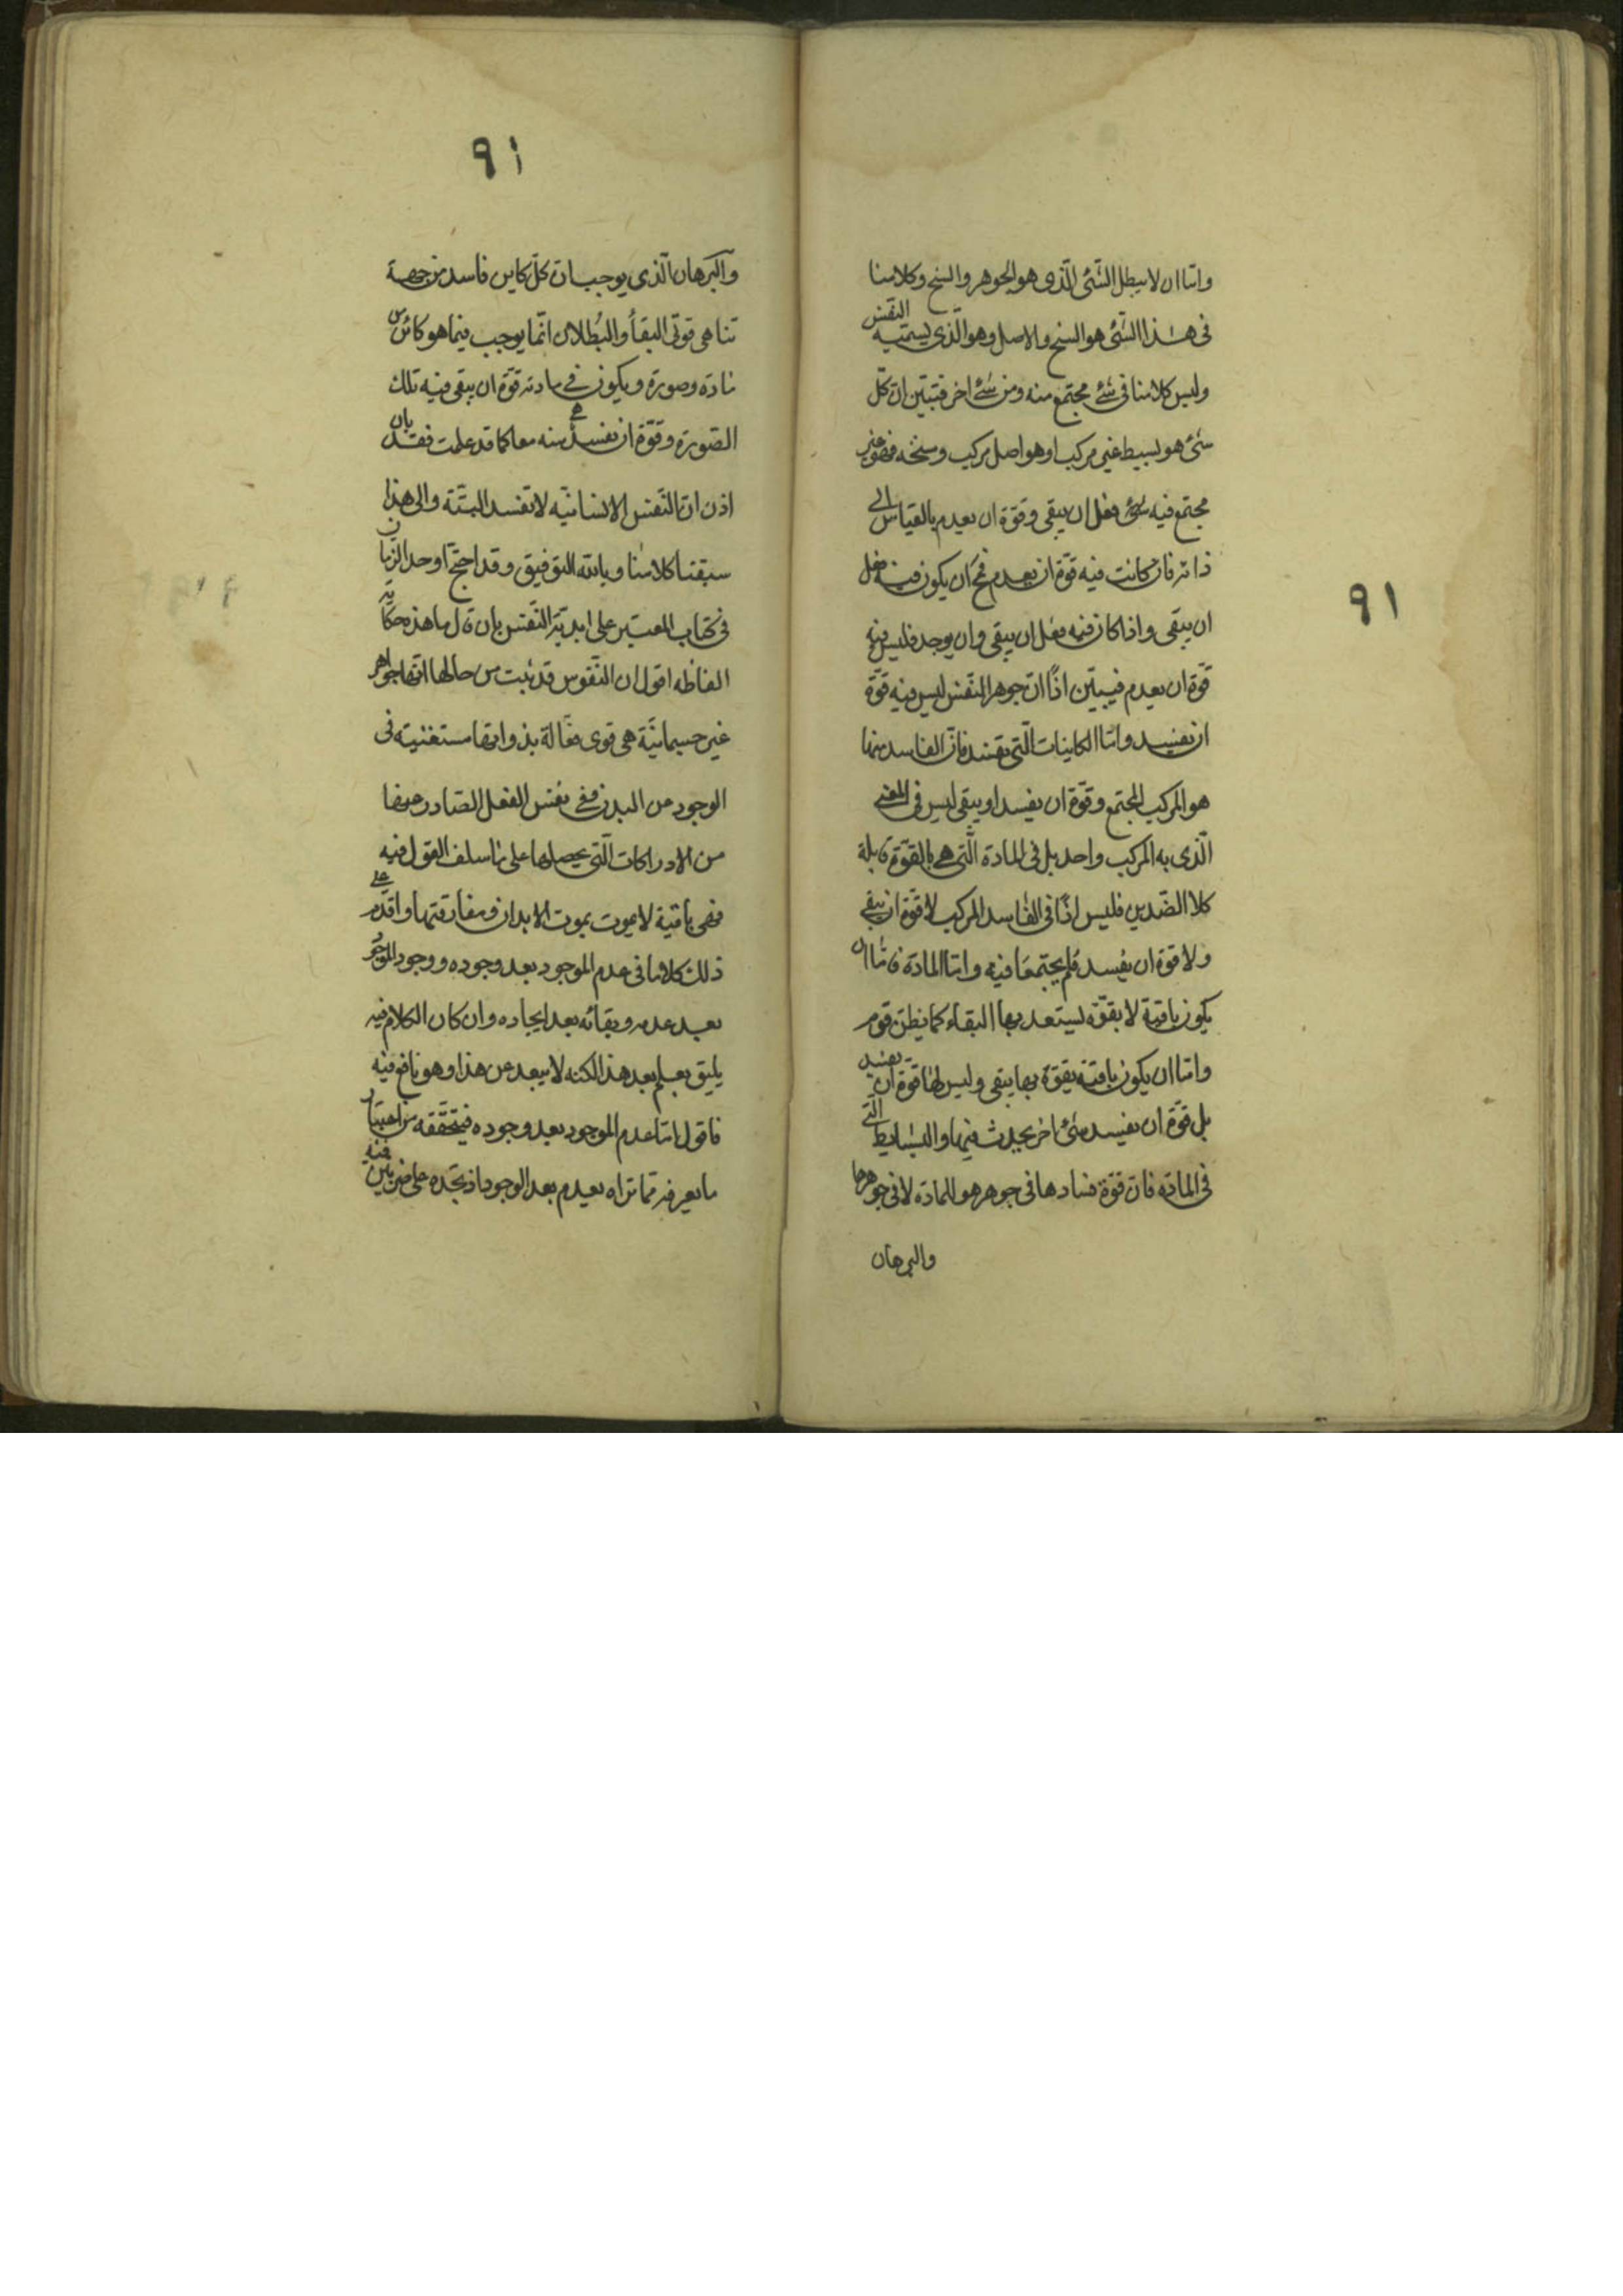 ٩١
واما ان لا يبطل الشئ الذى هو الجوهر والسنخ وكلامنا
فى هذا الشئ هو السنخ والاصل وهو الذى يسميه النفس
وليس كلامنا فى شئ مجتمع منه ومن شئ اخر فتبين ان كل
شئ هو بسيط غير مركب او هو اصل مركب وسنخه فهو غير
مجتمع فيه شئ فعل ان يبقى وقوة ان يعدم بالقياس الى
ذاته فان كانت فيه قوة ان يعدم فمح ان يكون فيه فعل
ان يبقى واذا كان فيه فعل ان يبقى وان يوجد فليس فيه
قوة ان يعدم فيبين اذًا ان جوهر النفس ليس فيه قوة
ان يفسد واما الكاينات التى تفسد فان الفاسد منها
هو المركب المجتمع وقوة ان يفسد او يبقى ليس فى المعنى
الذى به المركب واحد بل فى المادة التى هى بالقوة قابلة
كلا الضدين فليس اذًا فى الفاسد المركب لا قوة ان يبقى
ولا قوة ان يفسد فلم يجتمعا فيه واما المادة فاما ان
يكون باقية لا بقوة يستعد بها البقاء كما يظن قوم
واما ان يكون باقية بقوة بها يبقى وليس لها قوة ان يفسد
بل قوة ان يفسد شئ اخر يحدث فيها والبسايط التى
فى المادة فان قوة فسادها فى جوهر هو المادة لا فى جوهرها
والبرهان
٩١
والبرهان الذى يوجب ان كل كاين فاسد من جهة
تناهى قوتى البقأ والبطلان انما يوجب فيما هو كائن من
مادة وصورة ويكون فى مادته قوة ان يبقى فيه تلك
الصورة وقوة ان تفسد هى منه معا كما قد علمت فقد بان
اذن ان النفس الانسانية لا تفسد البتة والى هذا
سبقنا كلامنا وبالله التوفيق وقد احتج اوحد الزمان
فى كتاب المعتبر على ابدية النفس بان قال ما هذه حكاية
الفاظه اقول ان النفوس قد ثبت من حالها انها جواهر
غير جسمانية هى قوى فعالة بذواتها مستغنية فى
الوجود عن البدن وفى نفس الفعل الصادر عنها
من الادراكات التى يحصلها على ما سلف القول فيه
فهى باقية لا يموت بموت الابدان ومفارقتها واقدم على
ذلك كلاما فى عدم الموجود بعد وجوده ووجود الموجود
بعد عدمه وبقائه بعد ايجاده وان كان الكلام فيه
يليق بعلم بعد هذا لكنه لا يبعد عن هذا وهو نافع فيه
فاقول اما عدم الموجود بعد وجوده فيتحققه من اعتبار
ما يعرفه مما تراه يعدم بعد الوجود اذ تجده على ضربين فيه